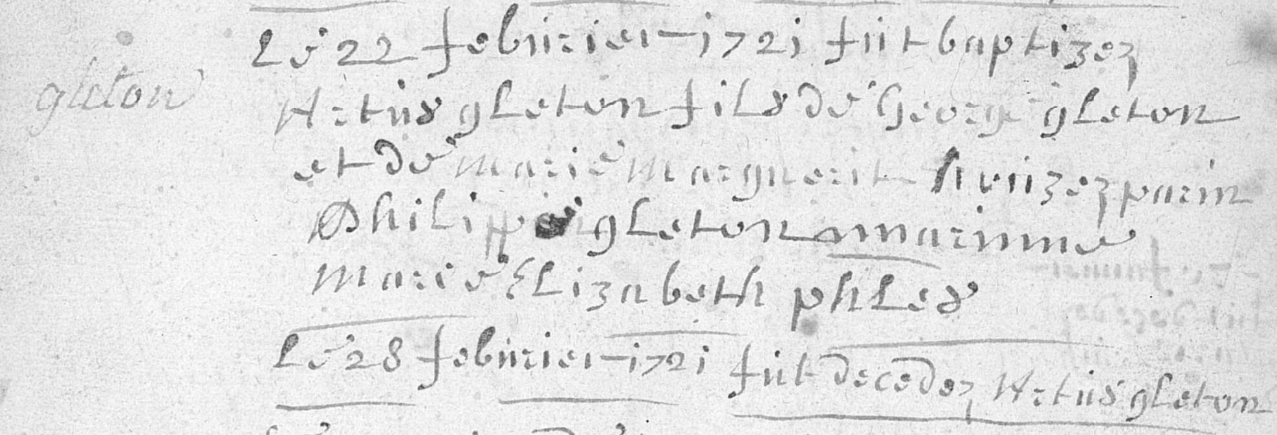 gleton
Le 22 febūrier 1721 fūt baptizez
Artūs gleton fils de George gleton
et de marie marguerit hūizez parin
Philippe gleton marinne
marie Elizabeth phles
Le 28 febūrier 1721 fūt decedez Artūs gleton